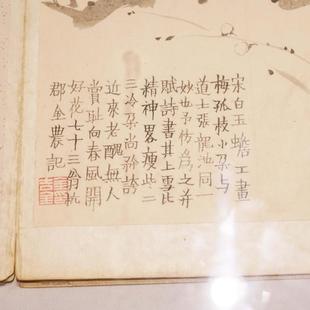 宋白玉蟾工畫
梅孤枝小朵与
道士張龍池同一
妙也予仿為之并
賦詩書其上雪比
精神畧瘦些二
三冷朵尚矜誇
近來老醜無人
賞恥向春風開
好花七十三翁杭
郡金農記